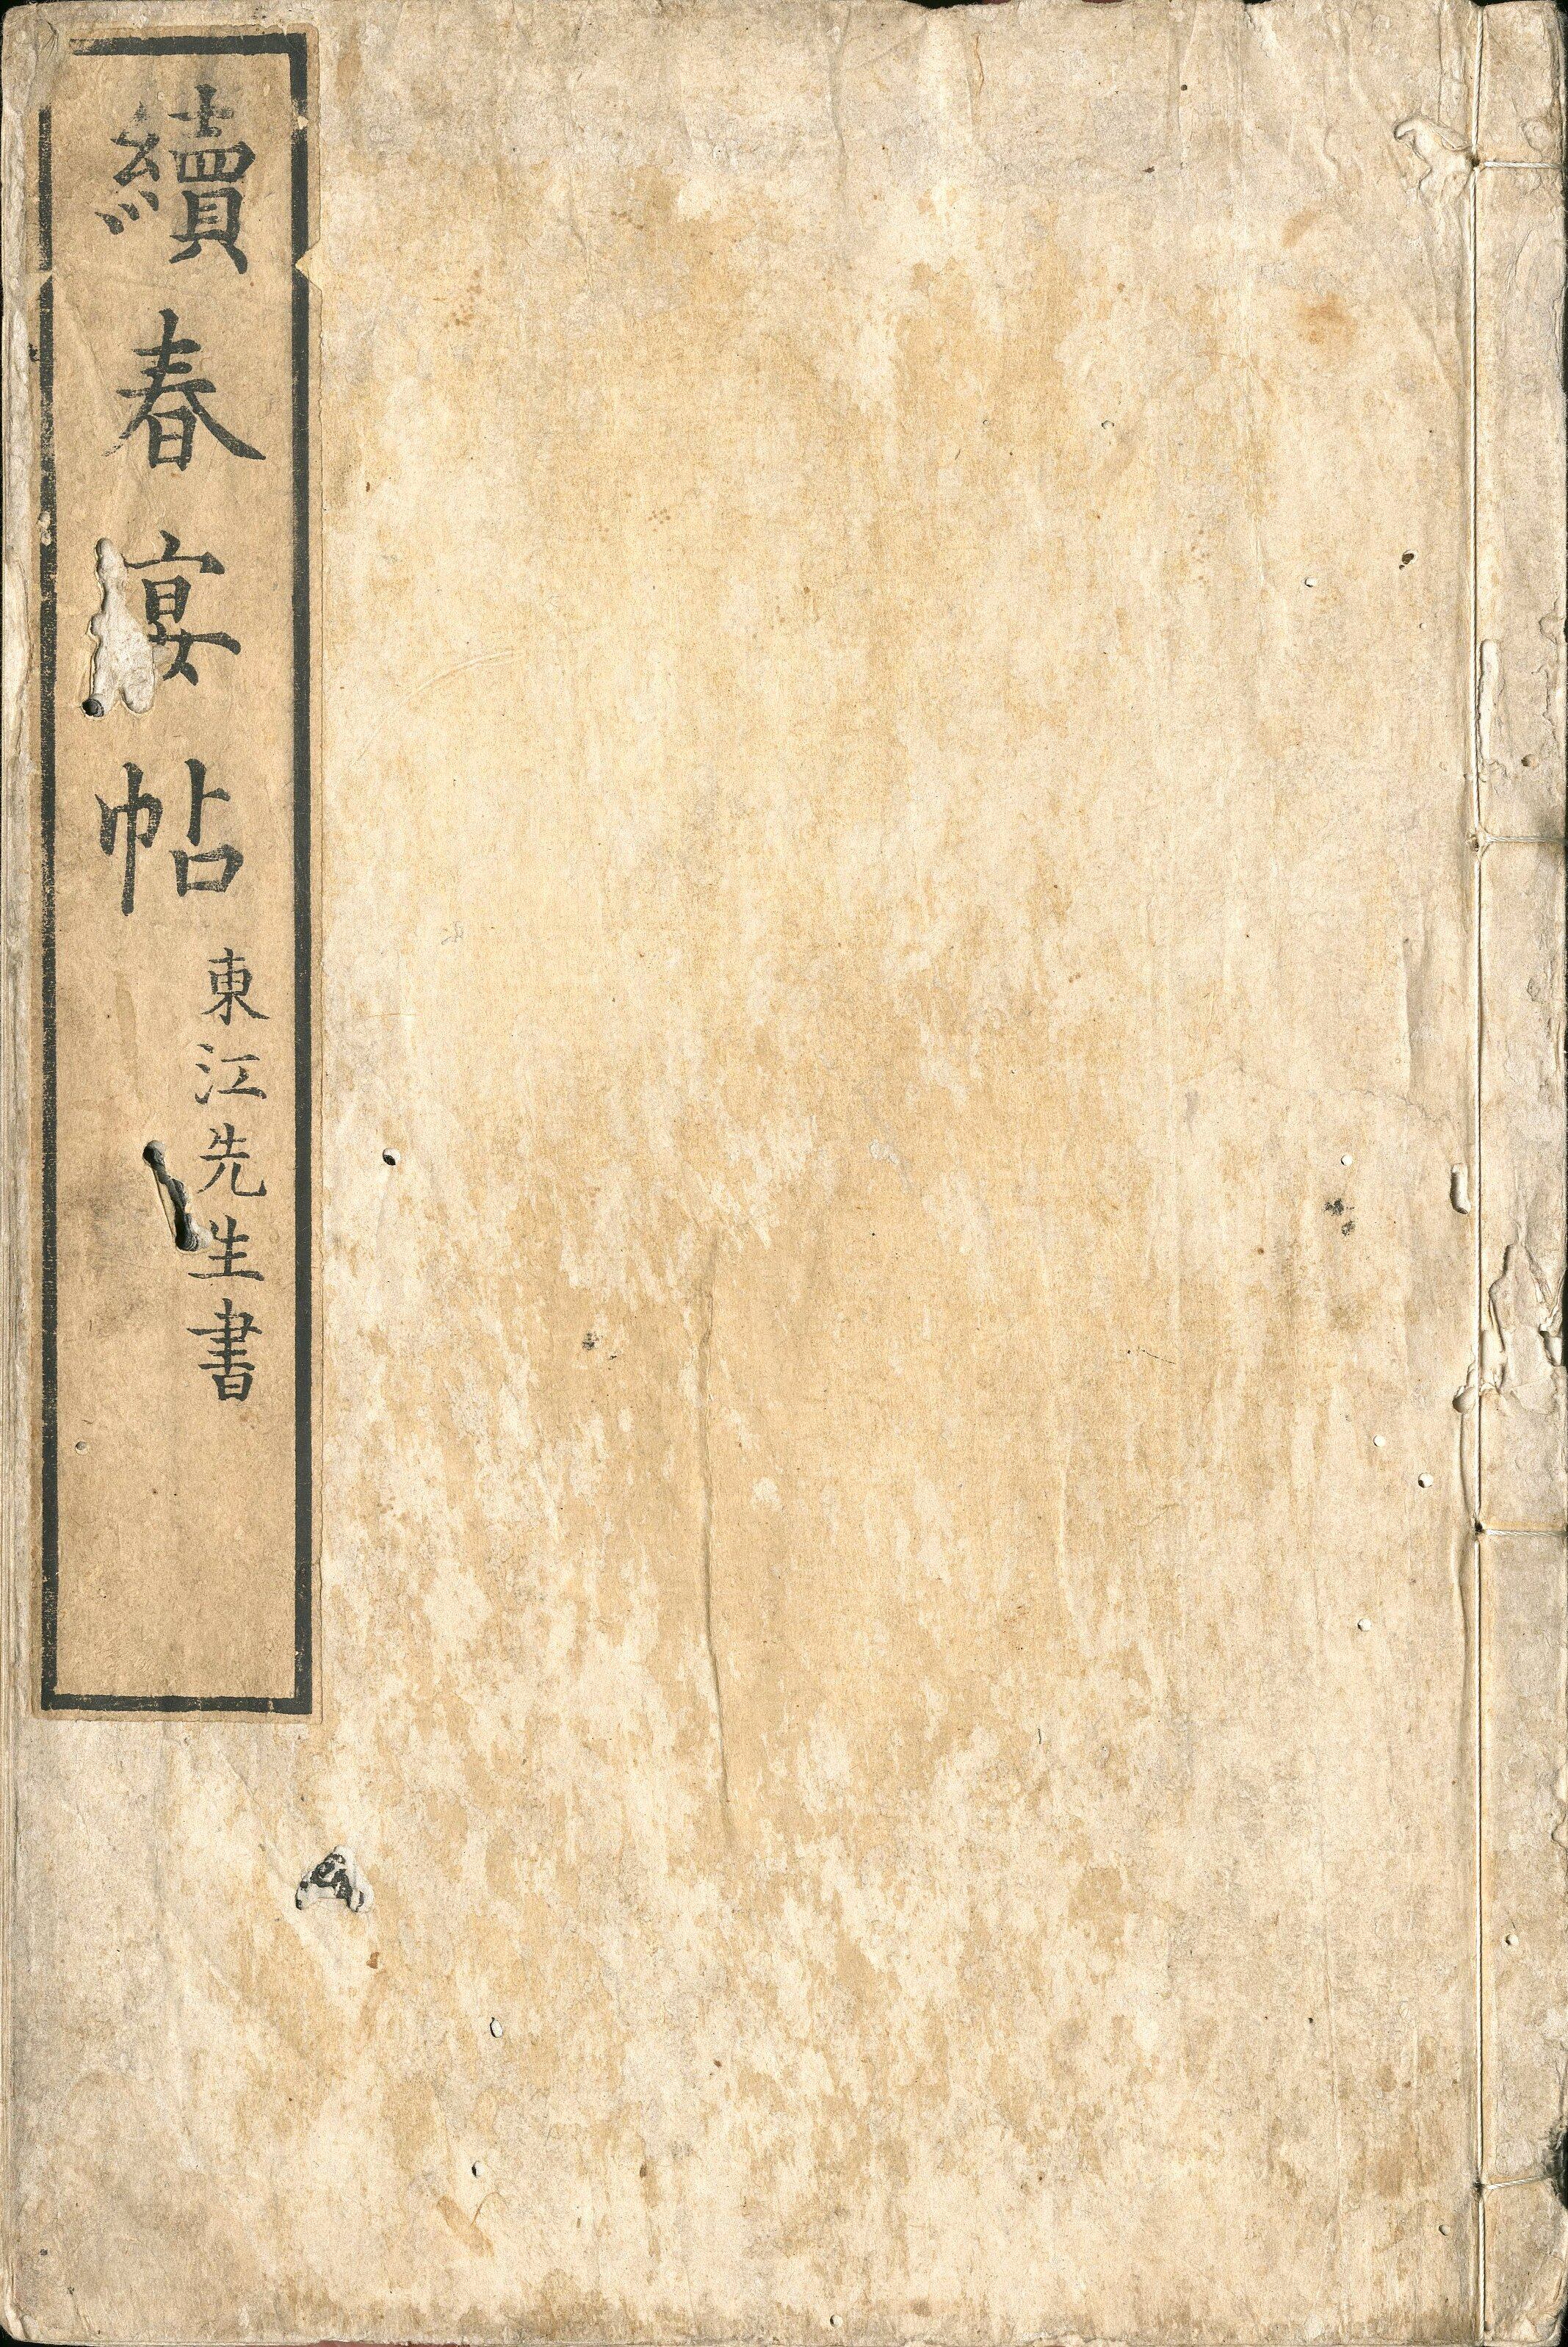 續春宴帖
東江先生書